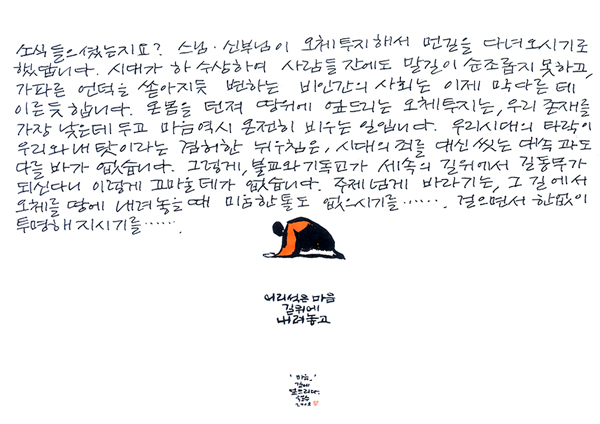 소식 들으셨는지요? 스님·신부님이 오체투지해서 먼길을 다녀오시기로
했답니다. 시대가 하 수상하여 사람들 잔에도 말길이 순조롭지 못하고,
가파른 언덕을 쏟아지듯 변하는 비인간의 사회는 이제 막다른 데
이른 듯 합니다. 온몸을 던져 땅위에 엎드리는 오체투지는, 우리 존재를
가장 낮은데 두고 마음 역시 온전히 비우는 일입니다. 우리시대의 타락이
우리와 내 탓이라는 겸허한 뉘우침은, 시대의 죄를 대신 씻는 대속과도
다를 바가 없습니다. 그렇게, 불교와 기독교가 세속의 길위에서 길동무가
되신다니 이렇게 고마울 데가 없습니다. 주제넘게 바라기는, 그 길에서
오체를 땅에 내려놓을 때 미움 한 톨도 없으시기를……. 걸으면서 한없이
투명해 지시기를…….
어리석은 마음
길위에
내려놓고
'마음,'
길에
엎드리다.